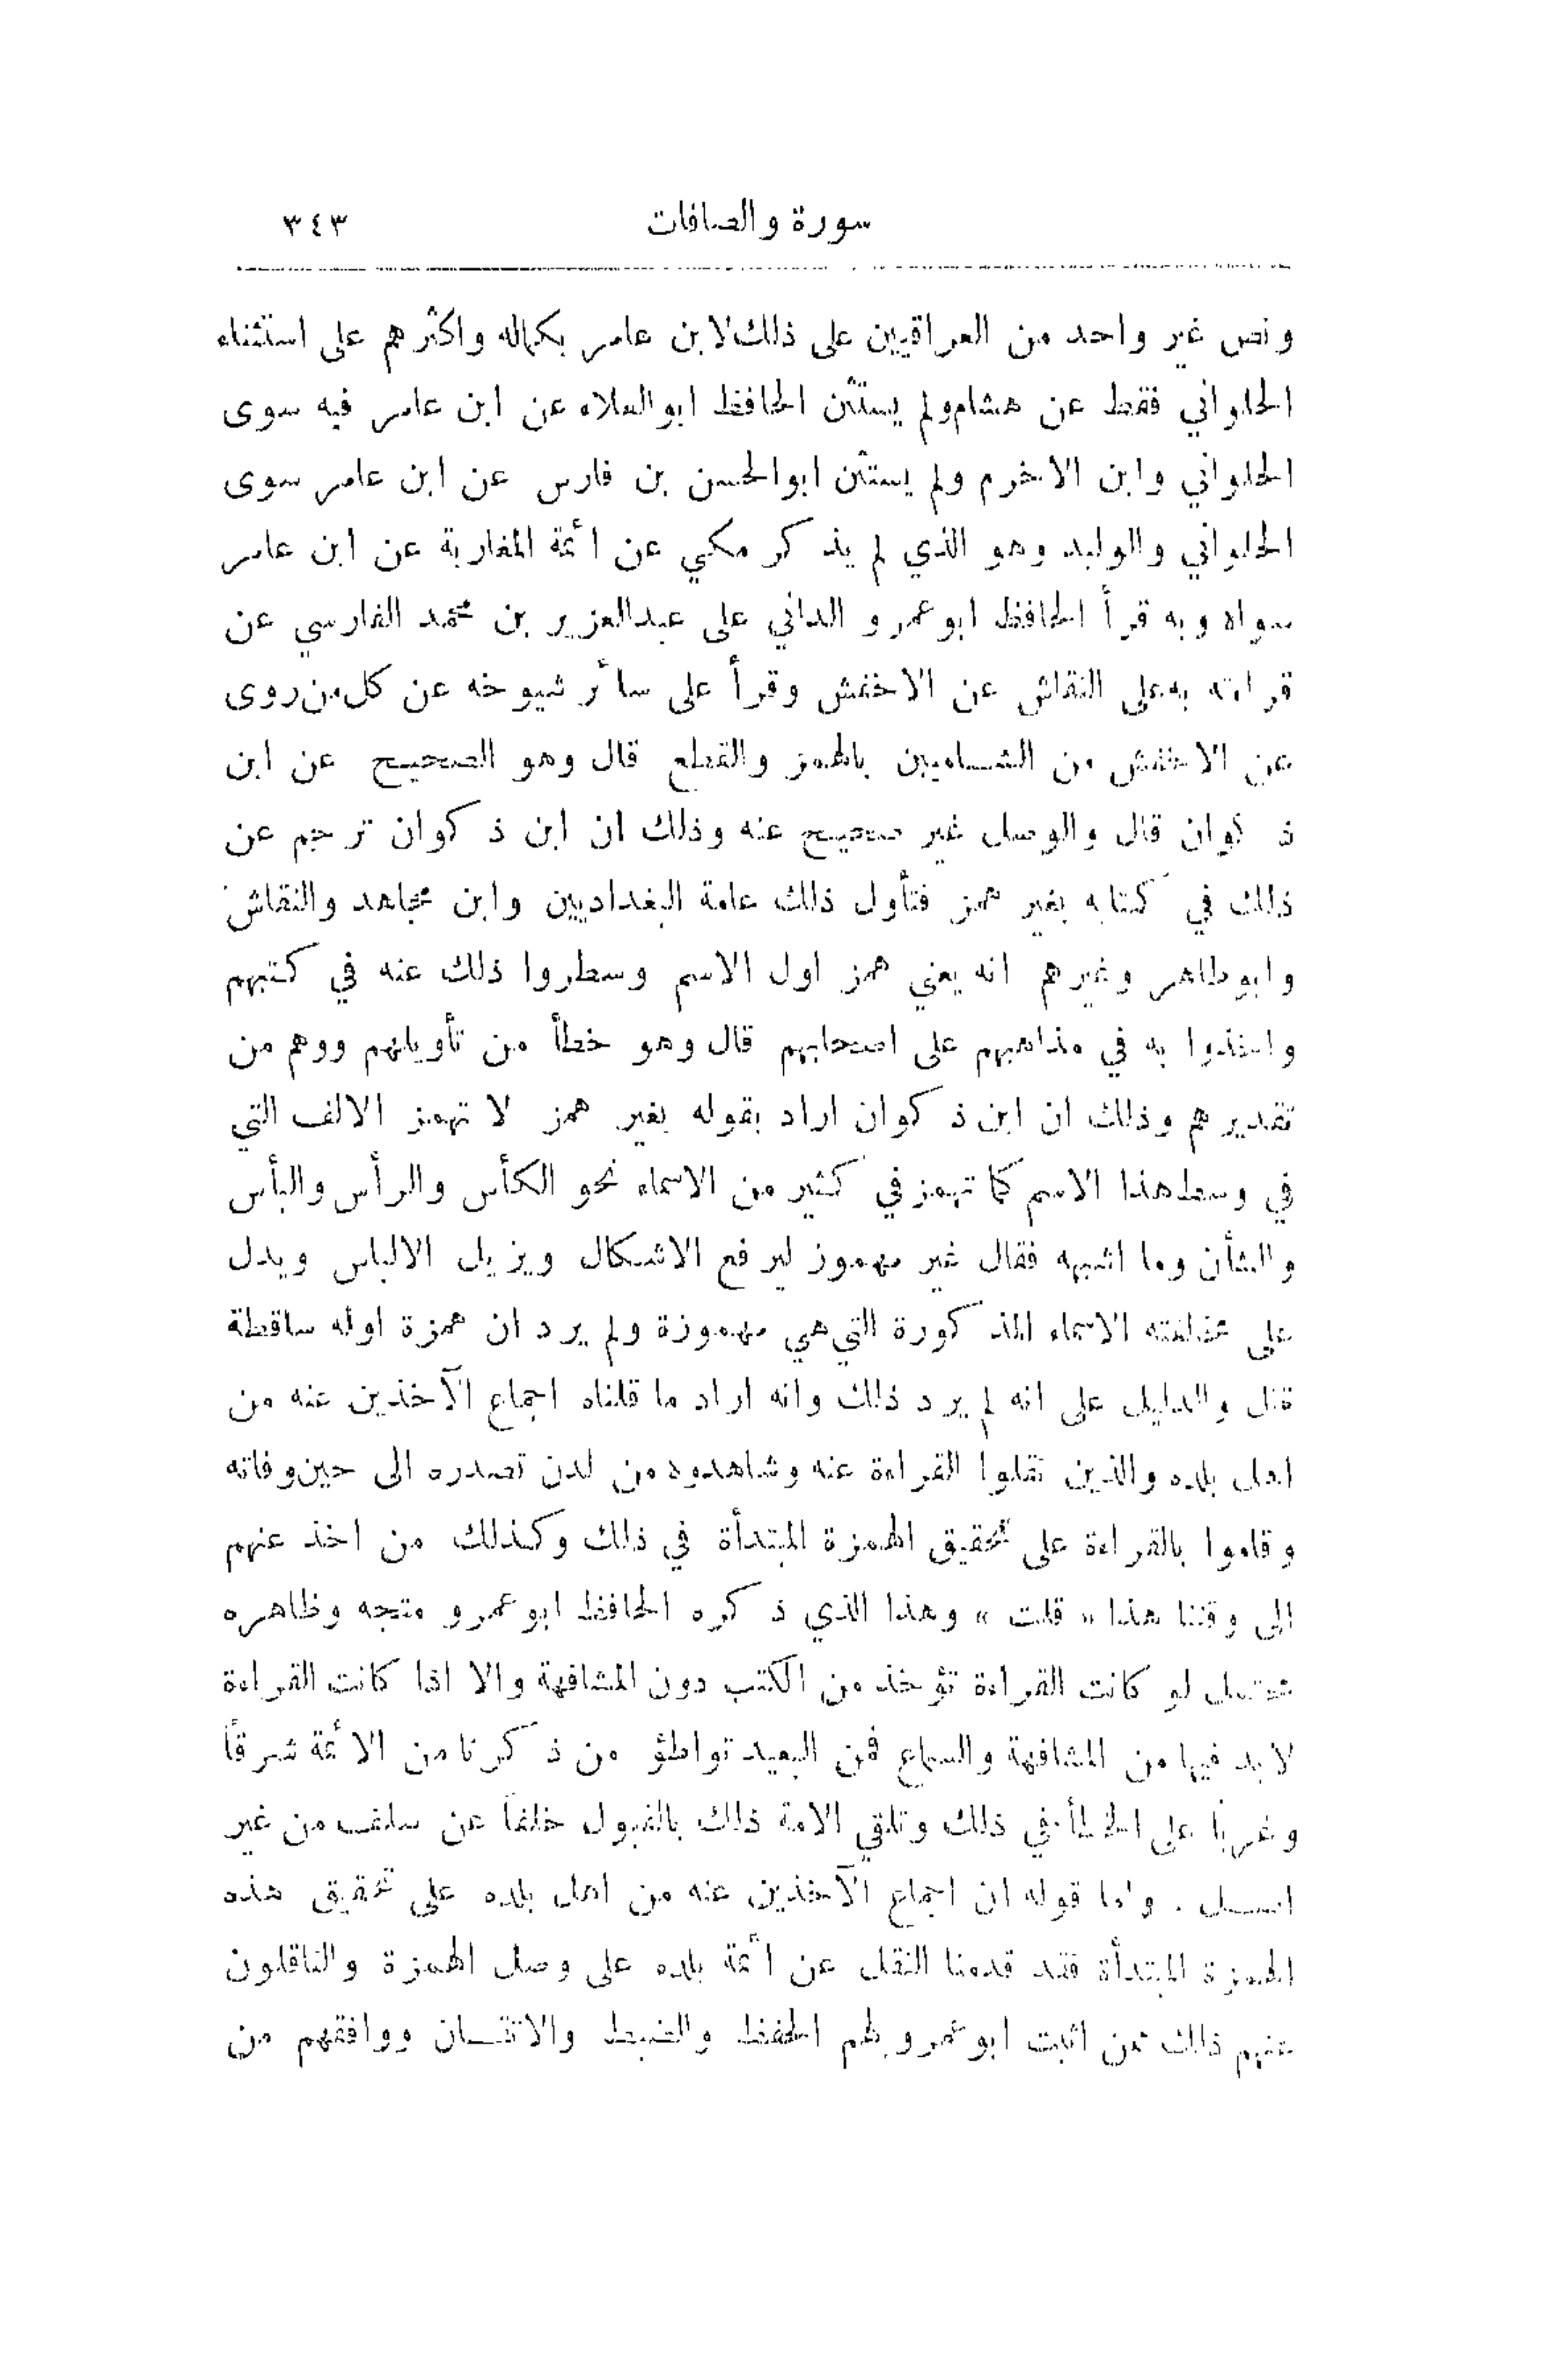 سورة والصافات ٣٤٣
ونص غير واحد من العراقيين على ذلك لابن عامر بكماله واكثرهم على استثناء
الحلواني فقط عن هشام ولم يستثن الحافظ ابو العلاء عن ابن عامر فيه سوى
الحلواني وابن الاخرم ولم يستثن ابو الحسن بن فارس عن ابن عامر سوى
الحلواني والوليد وهو الذي لم يذكر مكي عن ائمة المغاربة عن ابن عامر
سواه وبه قرأ الحافظ ابو عمرو الداني على عبد العزيز بن محمد الفارسي عن
قراءته به على النقاش عن الاخفش وقرأ على سائر شيوخه عن كل من روى
عن الاخفش من الشاميين بالهمز والقطع قال وهو الصحيح عن ابن
ذكوان قال والوصل غير صحيح عنه وذلك ان ابن ذكوان ترجم عن
ذلك في كتابه بغير همز فتأول ذلك عامة البغداديين وابن مجاهد والنقاش
وابو طاهر وغيرهم انه يعني همز اول الاسم وسطروا ذلك عنه في كتبهم
واخذوا به في مذاهبهم على اصحابهم قال وهو خطأ من تأويلهم ووهم من
تقديرهم وذلك ان ابن ذكوان اراد بقوله بغير همز لا تهمز الالف التي
في وسط هذا الاسم كما تهمز في كثير من الاسماء نحو الكأس والرأس والبأس
والشأن وما اشبهه فقال غير مهموز ليرفع الاشكال ويزيل الالباس ويدل
على مخالفته الاسماء المذكورة التي هي مهموزة ولم يرد ان همزة اوله ساقطة
قال والدليل على انه لم يرد ذلك وانه اراد ما قلناه اجماع الآخذين عنه من
اهل بلده والذين نقلوا القراءة عنه وشاهدوه من لدن تصدره الى حين وفاته
وقاموا بالقراءة على تحقيق الهمزة المبتدأة في ذلك وكذلك من اخذ عنهم
الى وقتنا هذا « قلت » وهذا الذي ذكره الحافظ ابو عمرو متجه وظاهره
محتمل لو كانت القراءة تؤخذ من الكتب دون المشافهة والا اذا كانت القراءة
لا بد فيها من المشافهة والسماع فمن البعيد تواطؤ من ذكرنا من الائمة شرقاً
وغرباً على الخطأ في ذلك وتلقي الامة ذلك بالقبول خلفاً عن سلف من غير
اصل . واما قوله ان اجماع الآخذين عنه من اهل بلده على تحقيق هذه
الهمزة المبتدأة فقد قدمنا النقل عن ائمة بلده على وصل الهمزة والناقلون
عنهم ذلك ممن اثبت ابو عمرو لهم الحفظ والضبط والاتقان ووافقهم من